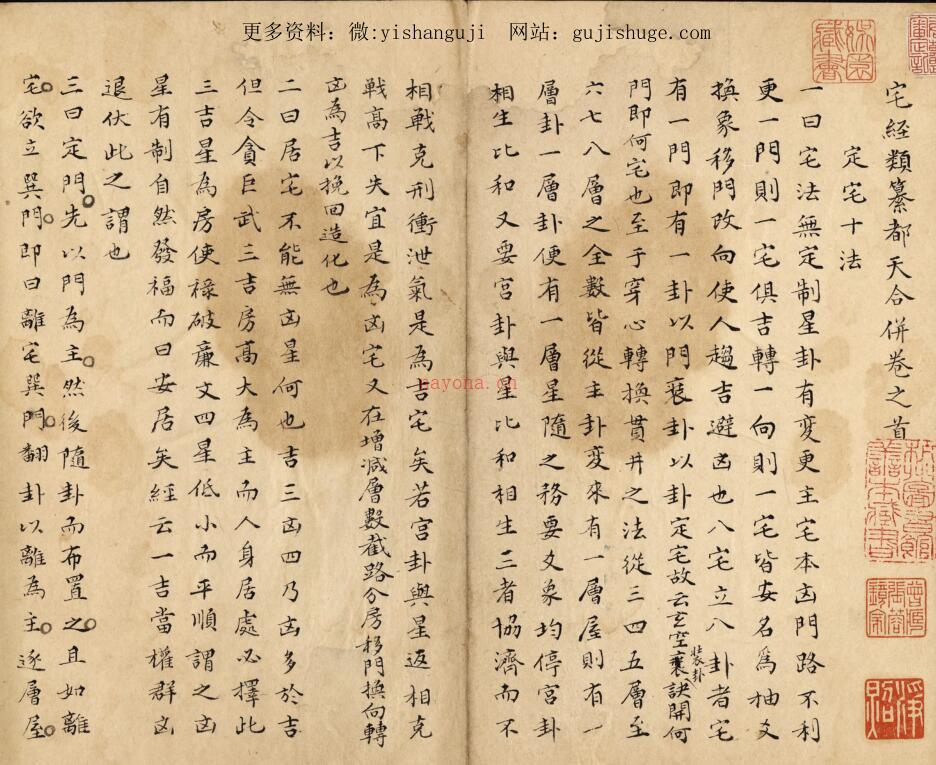 更多资料：微:yishanguji 网站：gujishuge.com
宅經類纂都天合併卷之首
定宅十法
一曰宅法無定制星卦有变更主宅本凶門路不利
更一門則一宅俱吉轉一向則一宅皆安名爲抽爻
換象移門改向使人趨吉避凶也八宅立八卦者宅
有一門即有一卦以門裝卦以卦定宅故云玄空裝卦訣開何
門即何宅也至于穿心轉換貫井之法從三四五層至
六七八層之全數皆從主卦变來有一層屋則有一
層卦一層卦便有一層星隨之務要爻象均停宮卦
相生比和又要宮卦與星比和相生三者協濟而不
相戰克刑衝泄氣是為吉宅矣若宮卦與星返相克
戰高下失宜是為凶宅又在增減層數截路分房移門換向轉
凶為吉以挽回造化也
二曰居宅不能無凶星何也吉三凶四乃凶多於吉
但令貪巨武三吉房高大為主而人身居處必擇此
三吉星為房使祿破廉文四星低小而平順謂之凶
星有制自然發福而曰安居矣經云一吉當權群凶
退伏此之謂也
三曰定門先以門為主然後隨卦而布置之且如離
宅欲立巽門即曰離宅巽門翻卦以離為主逐層屋
nayona.cn